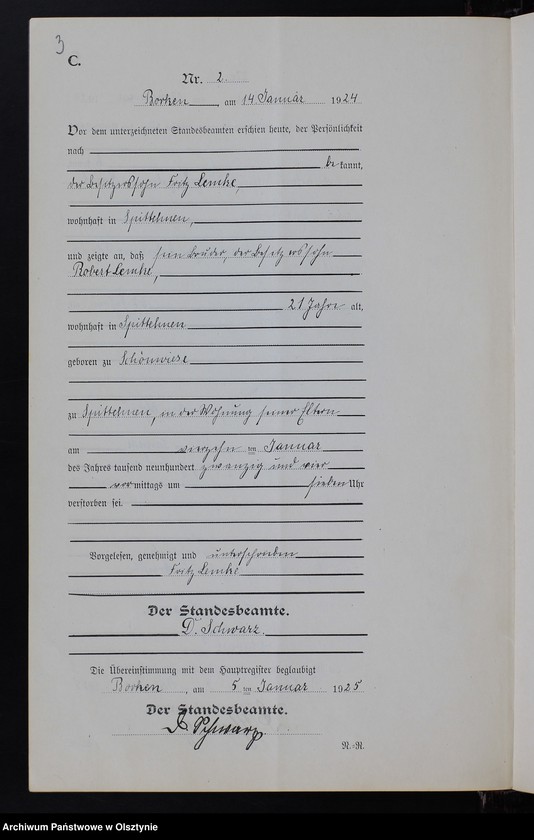 3
C.
Nr. 2.
Borken, am 14 Januar 1924
Vor dem unterzeichneten Standesbeamten erschien heute, der Persönlichkeit
nach
be kannt,
der Besitzerssohn Fritz Lemke,
wohnhaft in Spittehnen,
und zeigte an, daß sein Bruder, der Besitzerssohn
Robert Lemke,
21 Jahre alt,
wohnhaft in Spittehnen
geboren zu Schönwiese
zu Spittehnen, in der Wohnung seiner Eltern
am vierzehn ten Januar
des Jahres tausend neunhundert zwanzig und vier
vor mittags um sieben Uhr
verstorben sei.
Vorgelesen, genehmigt und unterschrieben
Fritz Lemke
Der Standesbeamte.
D. Schwarz.
Die Übereinstimmung mit dem Hauptregister beglaubigt
Borken, am 5 ten Januar 1925
Der Standesbeamte.
D Schwarz
N.-R.
Archiwum Państwowe w Olsztynie